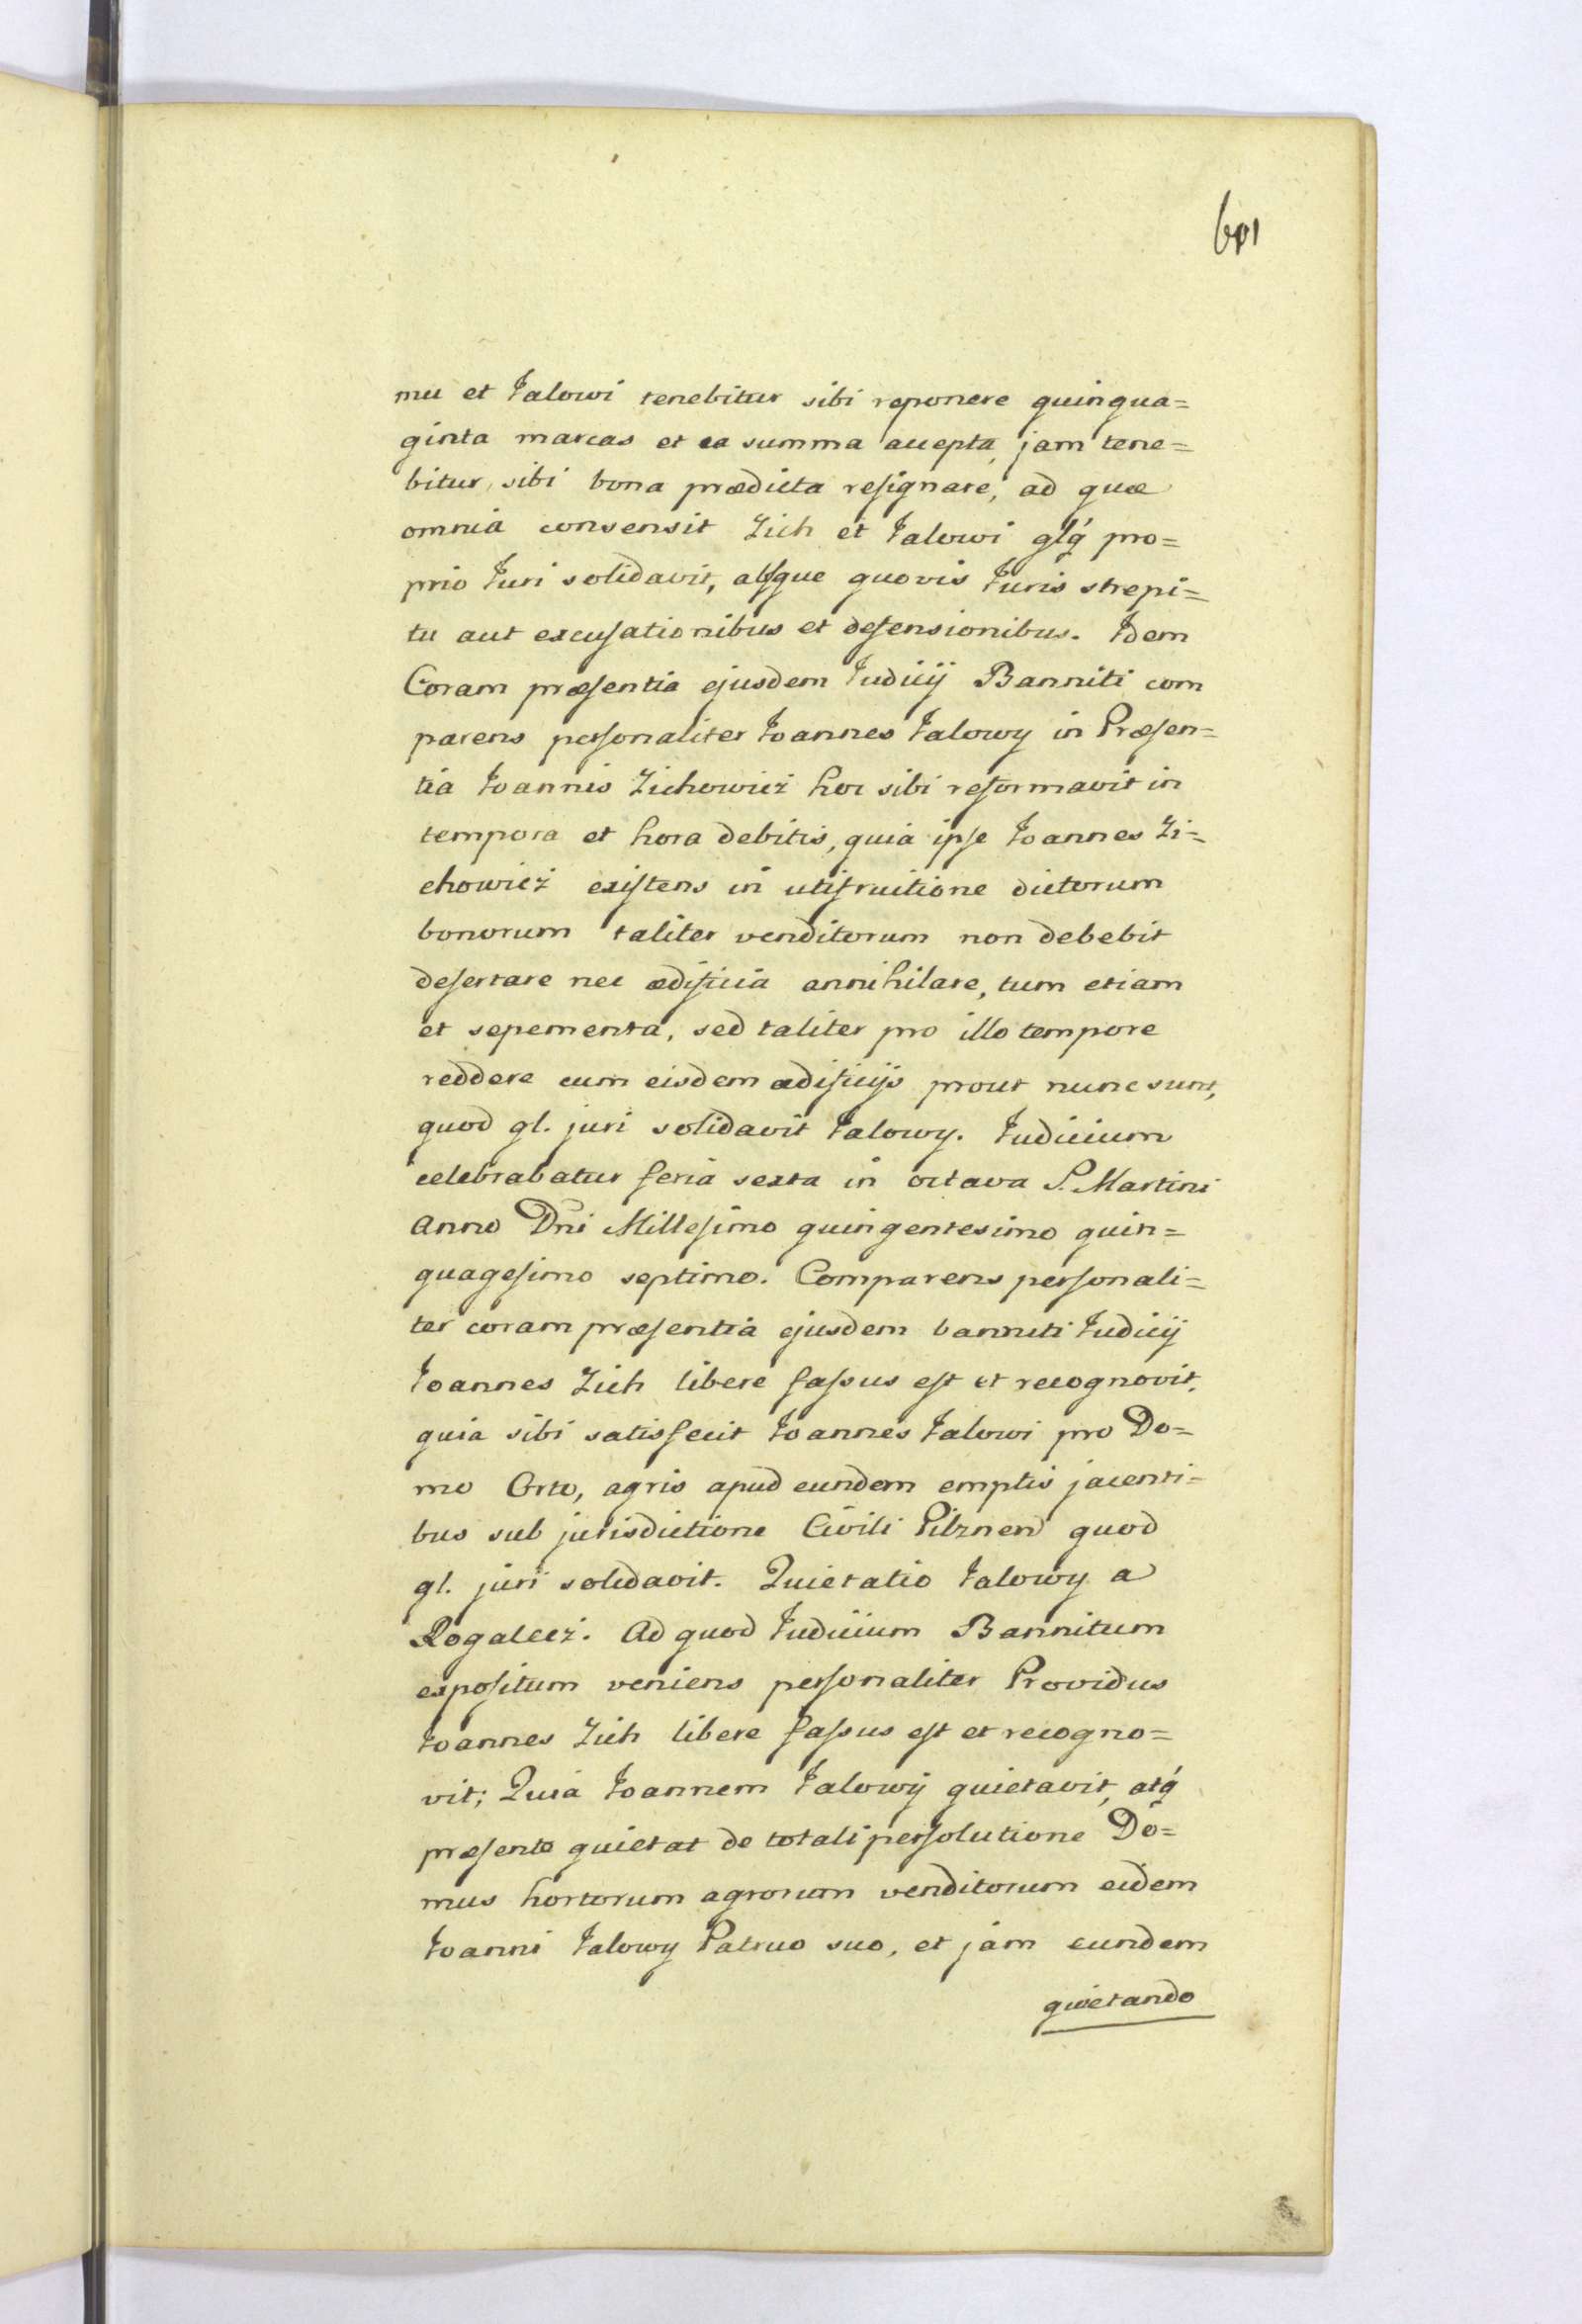 601
mu et Jalowi tenebitur sibi reponere quinqua=
ginta marcas et ea summa accepta, jam tene=
bitur sibi bona prædicta resignare, ad quæ
omnia consensit Zich et Jalowi glq́ pro=
prio Juri solidavit, absque quovis Juris strepi=
tu aut excusationibus et defensionibus. Idem
Coram præsentia ejusdem Judicij Banniti com
parens personaliter Joannes Jalowy in Præsen=
tia Joannis Zichowicz hoc sibi reformavit in
tempora et hora debitis, quia ipse Joannes Zi=
chowicz existens in utifruitione dictorum
bonorum taliter venditorum non debebit
desertare nec ædificia annihilare, tum etiam
et sepementa, sed taliter pro illo tempore
reddere cum eisdem ædificijs prout nunc sunt,
quod gl. juri solidavit Jalowy. Judicium
celebrabatur feria sexta in octava S. Martini
Anno Dni Millesimo quingentesimo quin=
quagesimo septimo. Comparens personali=
ter coram præsentia ejusdem banniti Judicij
Joannes Zich libere fassus est et recognovit,
quia sibi satisfecit Joannes Jalowi pro Do=
mo Orto, agris apud eundem emptis jacenti=
bus sub jurisdictione Civili Pilznen quod
gl. juri solidavit. Quietatio Jalowy a
Rogalecz. Ad quod Judicium Bannitum
expositum veniens personaliter Providus
Joannes Zich libere fassus est et recogno=
vit; Quia Joannem Jalowÿ quietavit, atq́
præsente quietat de totali persolutione Do=
mus hortorum agrorum venditorum eidem
Joanni Jalowy Patruo suo, et jam eundem
quietando